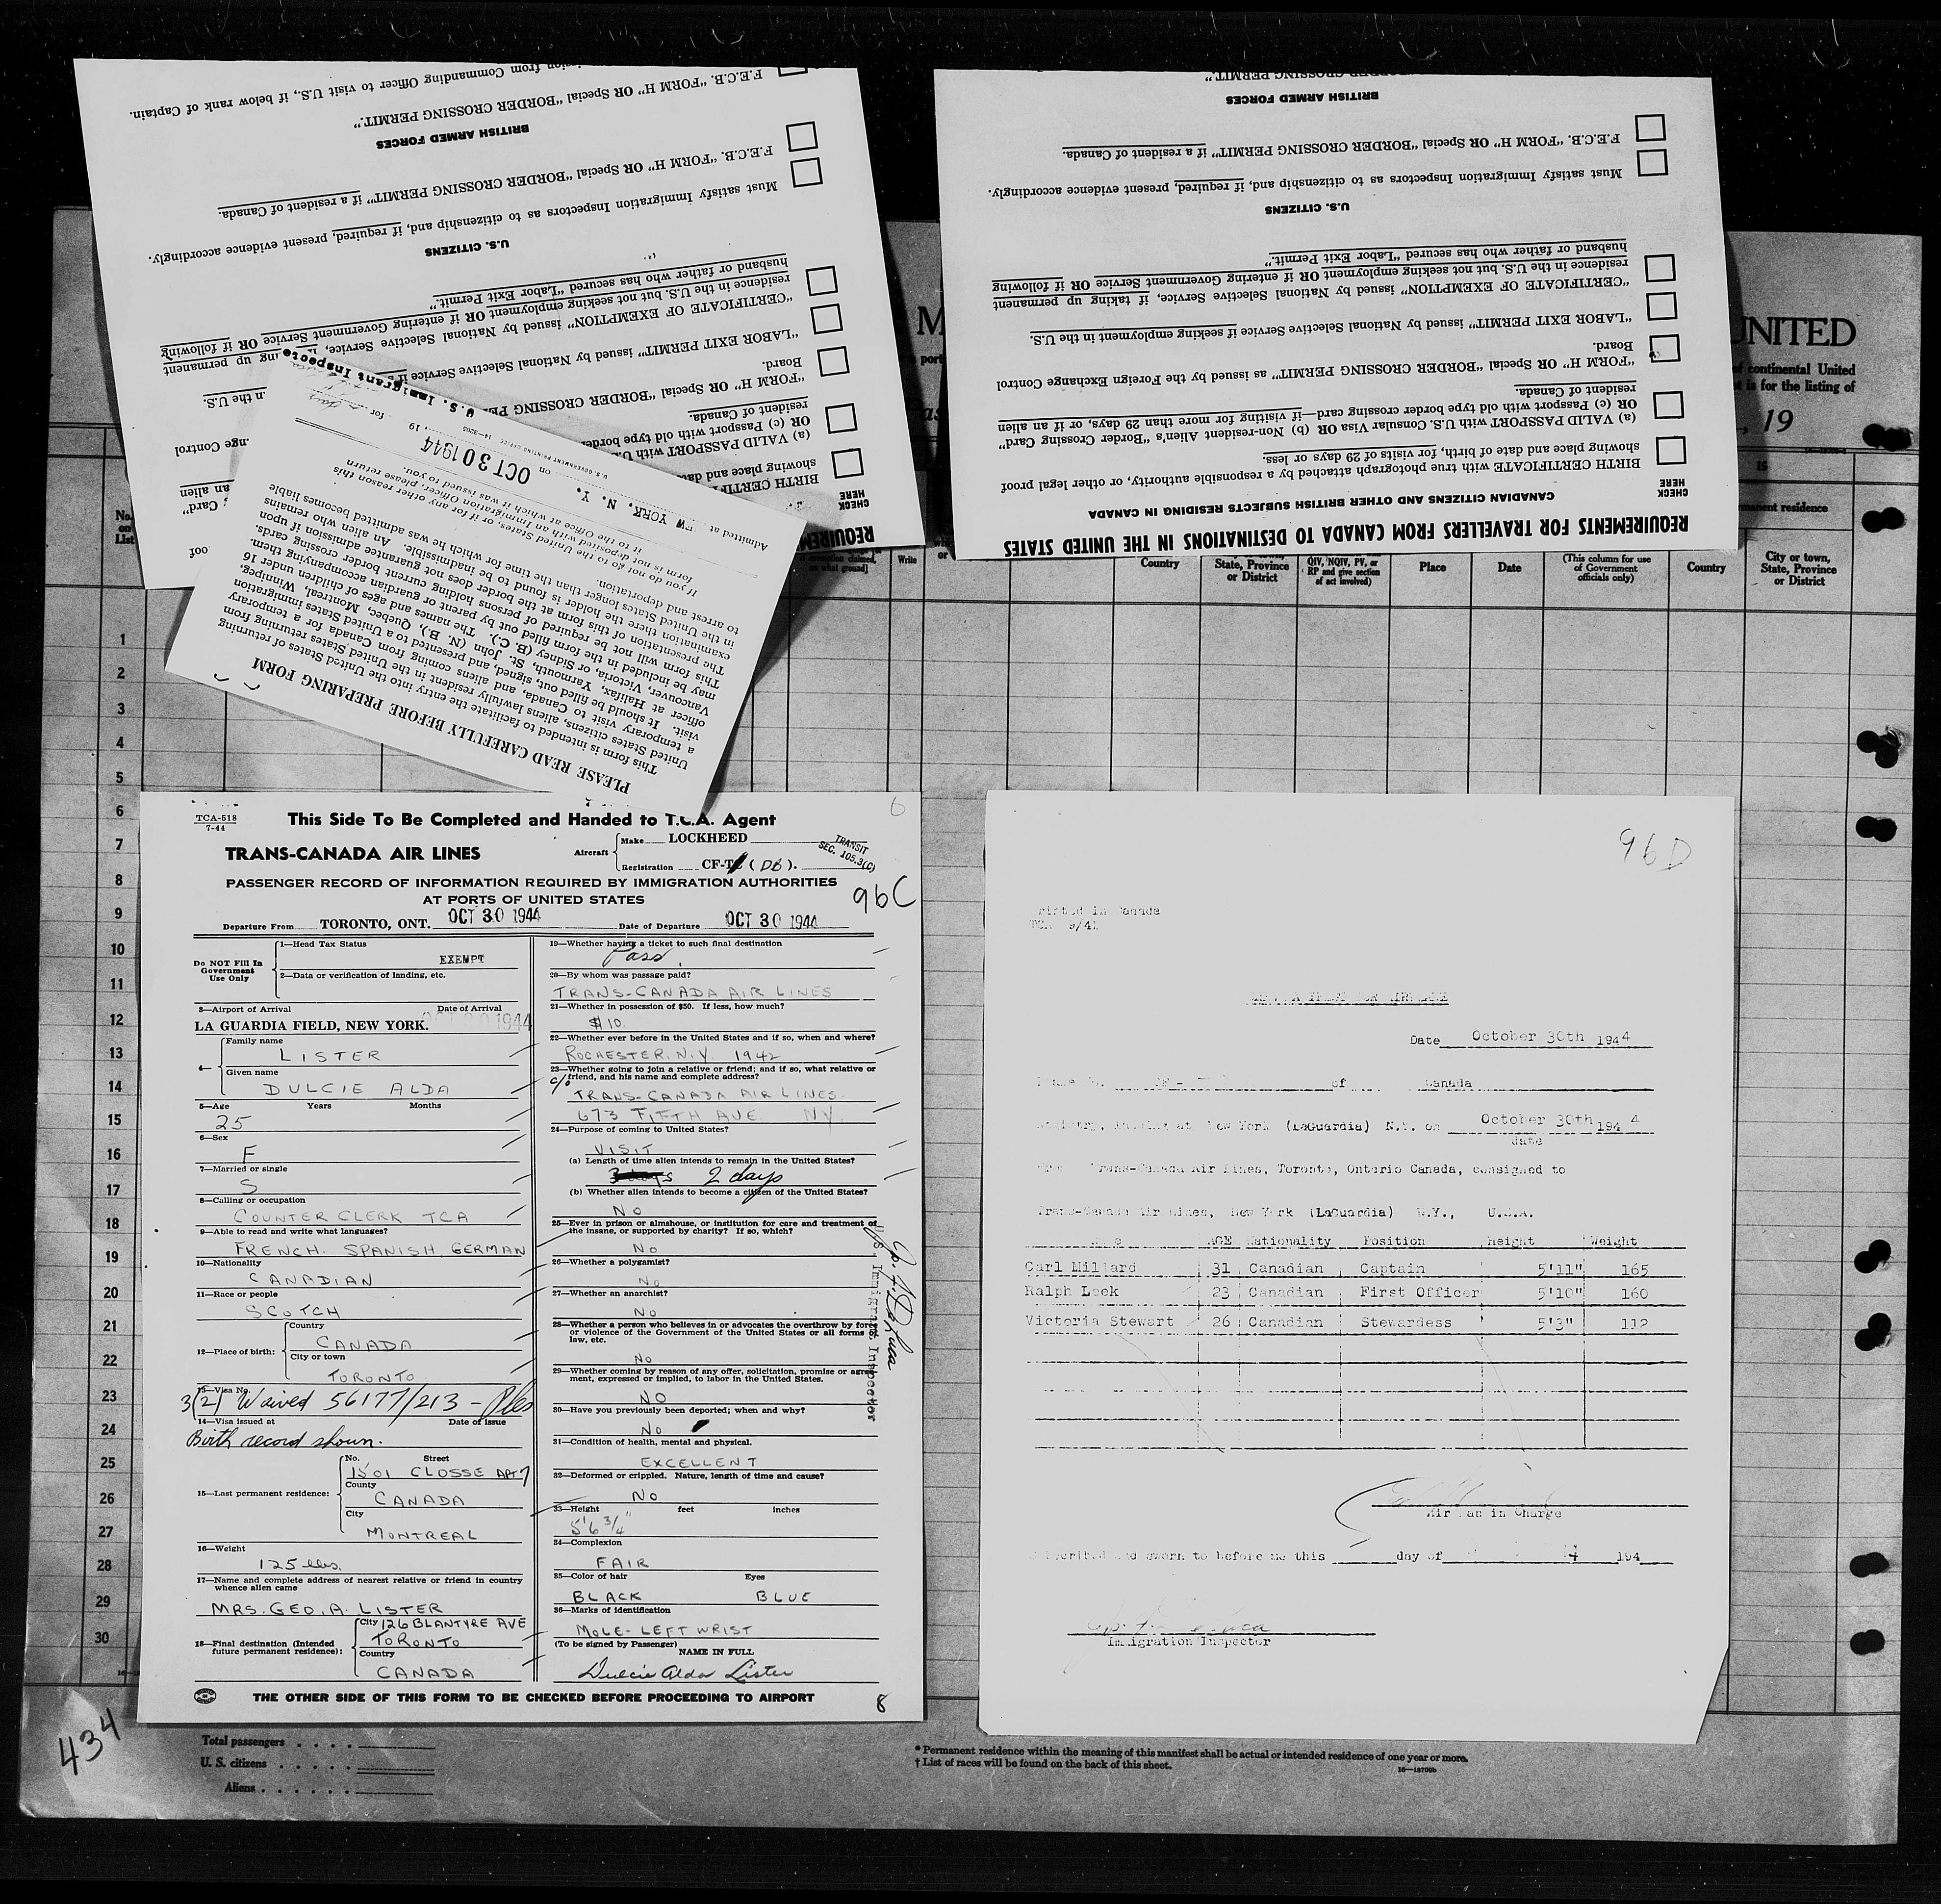 mission from Commanding Officer to visit U.S., if below rank of Captain.
F.E.C.B. "FORM H" OR Special "BORDER CROSSING PERMIT."
BRITISH ARMED FORCES
F.E.C.B. "FORM H" OR Special "BORDER CROSSING PERMIT" if a resident of Canada.
Must satisfy Immigration Inspectors as to citizenship and, if required, present evidence accordingly.
U.S. CITIZENS
husband or father who has secured "Labor Exit Permit."
residence in the U.S. but not seeking employment OR if entering Government Service OR if following
"CERTIFICATE OF EXEMPTION" issued by National Selective Service, up permanent
"LABOR EXIT PERMIT" issued by National Selective Service in the U.S.
Board.
"FORM H" OR Special "BORDER CROSSING Control
resident of Canada.
OR (c) Passport with old type border an alien
(a) VALID PASSPORT with Card"
showing place and
BIRTH
CHECK
HERE
BORDER CROSSING PERMIT."
BRITISH ARMED FORCES
F.E.C.B. "FORM H" OR Special "BORDER CROSSING PERMIT" if a resident of Canada.
Must satisfy Immigration Inspectors as to citizenship and, if required, present evidence accordingly.
U.S. CITIZENS
husband or father who has secured "Labor Exit Permit."
residence in the U.S. but not seeking employment OR if entering Government Service OR if following
"CERTIFICATE OF EXEMPTION" issued by National Selective Service, if taking up permanent
"LABOR EXIT PERMIT" issued by National Selective Service if seeking employment in the U.S.
Board.
"FORM H" OR Special "BORDER CROSSING PERMIT" as issued by the Foreign Exchange Control
resident of Canada.
OR (c) Passport with old type border crossing card—if visiting for more than 29 days, or if an alien
(a) VALID PASSPORT with U.S. Consular Visa OR (b) Non-resident Alien's "Border Crossing Card"
showing place and date of birth, for visits of 29 days or less.
BIRTH CERTIFICATE with true photograph attached by a responsible authority, or other legal proof
CHECK
HERE
CANADIAN CITIZENS AND OTHER BRITISH SUBJECTS RESIDING IN CANADA
REQUIREMENTS FOR TRAVELLERS FROM CANADA TO DESTINATIONS IN THE UNITED STATES
PLEASE READ CAREFULLY BEFORE PREPARING FORM
This form is intended to facilitate the entry into the United States of returning
United States citizens, aliens lawfully resident in the United States returning from
a temporary visit to Canada, and aliens coming from Canada for a temporary
visit. It should be filled out, signed, and presented to a United States immigration
officer at Halifax, Yarmouth, St. John (N. B.), Quebec, Montreal, Winnipeg,
Vancouver, Victoria, or Sidney (B. C.). The names and ages of children under 16
may be included in the form filled out by parent or guardian accompanying them.
This form will not be required of persons holding current border crossing cards.
The presentation of this form at the border does not guarantee admission if upon
examination there the holder is found to be inadmissible. An alien who remains
in the United States longer than the time for which he was admitted becomes liable
to arrest and deportation.
If you do not go to the United States, or if for any other reason this
form is not deposited with an Immigration Officer, please return
it to the Office at which it was issued to you.
U.S. GOVERNMENT PRINTING OFFICE
Admitted at NEW YORK, N. Y. on OCT 30 1944, 19 for
U. S. Immigrant Inspector
UNITED
of continental United
is for the listing of
, 19
permanent residence
No.
on
List
Write
Country
State, Province
or District
QIV, NQIV, PV, or
RP and give section
of act involved)
Place
Date
(This column for use
of Government
officials only)
Country
City or town,
State, Province
or District
1
2
3
4
5
6
7
8
9
10
11
12
13
14
15
16
17
18
19
20
21
22
23
24
25
26
27
28
29
30
TCA-518
7-44
This Side To Be Completed and Handed to T.C.A. Agent
6
TRANS-CANADA AIR LINES
Aircraft
Make LOCKHEED
Registration CF-T (DB).
TRANSIT
SEC. 105.3(C)
PASSENGER RECORD OF INFORMATION REQUIRED BY IMMIGRATION AUTHORITIES
AT PORTS OF UNITED STATES
96C
Departure From TORONTO, ONT. OCT 30 1944 Date of Departure OCT 30 1944
Do NOT Fill In
Government
Use Only
1—Head Tax Status
EXEMPT
2—Data or verification of landing, etc.
3—Airport of Arrival Date of Arrival
LA GUARDIA FIELD, NEW YORK. OCT 30 1944
4— Family name
LISTER
Given name
DULCIE ALDA
5—Age Years Months
25
6—Sex
F
7—Married or single
S
8—Calling or occupation
COUNTER CLERK TCA
9—Able to read and write what languages?
FRENCH. SPANISH GERMAN
10—Nationality
CANADIAN
11—Race or people
SCOTCH
12—Place of birth:
Country
CANADA
City or town
TORONTO
13—Visa No.
3(2) Waived 56177/213 -
14—Visa issued at Date of issue
Birth record shown.
15—Last permanent residence:
No. Street
1501 CLOSSE APT 7
County
CANADA
City
MONTREAL
16—Weight
125 lbs.
17—Name and complete address of nearest relative or friend in country
whence alien came
MRS. GEO. A. LISTER
18—Final destination (Intended
future permanent residence):
City 126 BLANTYRE AVE
TORONTO
Country
CANADA
19—Whether having a ticket to such final destination
Pass
20—By whom was passage paid?
TRANS-CANADA AIR LINES
21—Whether in possession of $50. If less, how much?
$10.
22—Whether ever before in the United States and if so, when and where?
ROCHESTER. N.Y. 1942
23—Whether going to join a relative or friend; and if so, what relative or
friend, and his name and complete address?
c/o TRANS-CANADA AIR LINES.
673 FIFTH AVE. NY.
24—Purpose of coming to United States?
VISIT
(a) Length of time alien intends to remain in the United States?
3 days 2 days
(b) Whether alien intends to become a citizen of the United States?
NO
25—Ever in prison or almshouse, or institution for care and treatment of
the insane, or supported by charity? If so, which?
NO
26—Whether a polygamist?
No
27—Whether an anarchist?
NO
28—Whether a person who believes in or advocates the overthrow by force
or violence of the Government of the United States or all forms of
law, etc.
No
29—Whether coming by reason of any offer, solicitation, promise or agree-
ment, expressed or implied, to labor in the United States.
NO
30—Have you previously been deported; when and why?
No
31—Condition of health, mental and physical.
EXCELLENT
32—Deformed or crippled. Nature, length of time and cause?
No
33—Height feet inches
5'6 3/4"
34—Complexion
FAIR
35—Color of hair Eyes
BLACK BLUE
36—Marks of identification
MOLE- LEFT WRIST
(To be signed by Passenger) NAME IN FULL
Dulcie Alda Lister
U.S. Immigrant Inspector
THE OTHER SIDE OF THIS FORM TO BE CHECKED BEFORE PROCEEDING TO AIRPORT
8
96D
Printed in Canada
TCA 9/41
Date October 30th 1944
of Canada
Registry, landing at New York (LaGuardia) N.Y. on October 30th 1944
date
Trans-Canada Air Lines, Toronto, Ontario Canada, consigned to
Trans-Canada Air Lines, New York (LaGuardia) N.Y., U.S.A.
Name AGE Nationality Position Height Weight
Carl Millard 31 Canadian Captain 5'11" 165
Ralph Leek 23 Canadian First Officer 5'10" 160
Victoria Stewart 26 Canadian Stewardess 5'3" 112
Air Man in Charge
Subscribed and sworn to before me this day of 194
Immigration Inspector
434
Total passengers
U. S. citizens
Aliens
* Permanent residence within the meaning of this manifest shall be actual or intended residence of one year or more.
† List of races will be found on the back of this sheet.
16—18700b